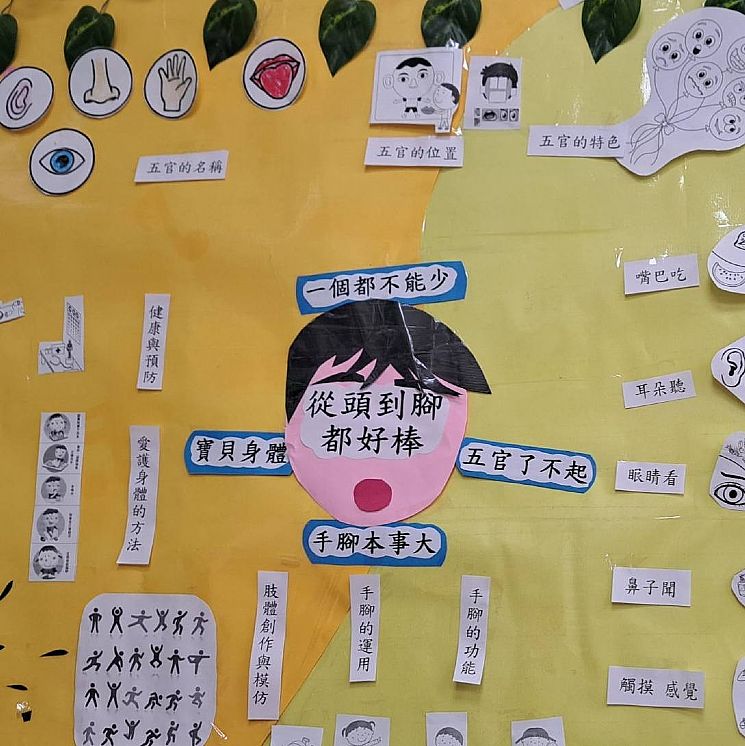 五官的名稱
五官的位置
五官的特色
一個都不能少
嘴巴吃
健康與預防
從頭到腳
都好棒
耳朵聽
寶貝身體
五官了不起
愛護身體的方法
眼睛看
手腳本事大
肢體創作與模仿
手腳的運用
手腳的功能
鼻子聞
觸摸 感覺